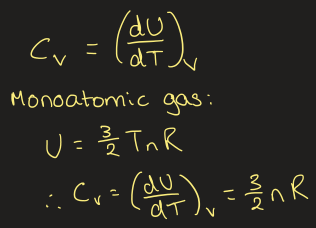 C_v = (dU/dT)_v
Monoatomic gas:
U = 3/2 TnR
∴ C_v = (dU/dT)_v = 3/2 nR